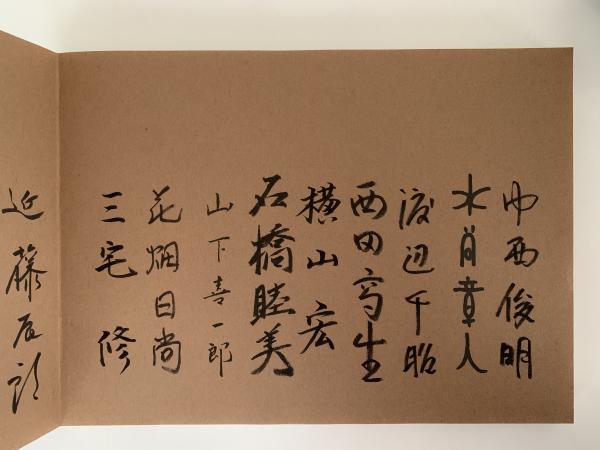 中西俊明
水肖章人
渡辺千昭
西田省生
横山宏
石橋睦美
山下喜一郎
花畑日尚
三宅修
近藤辰郎